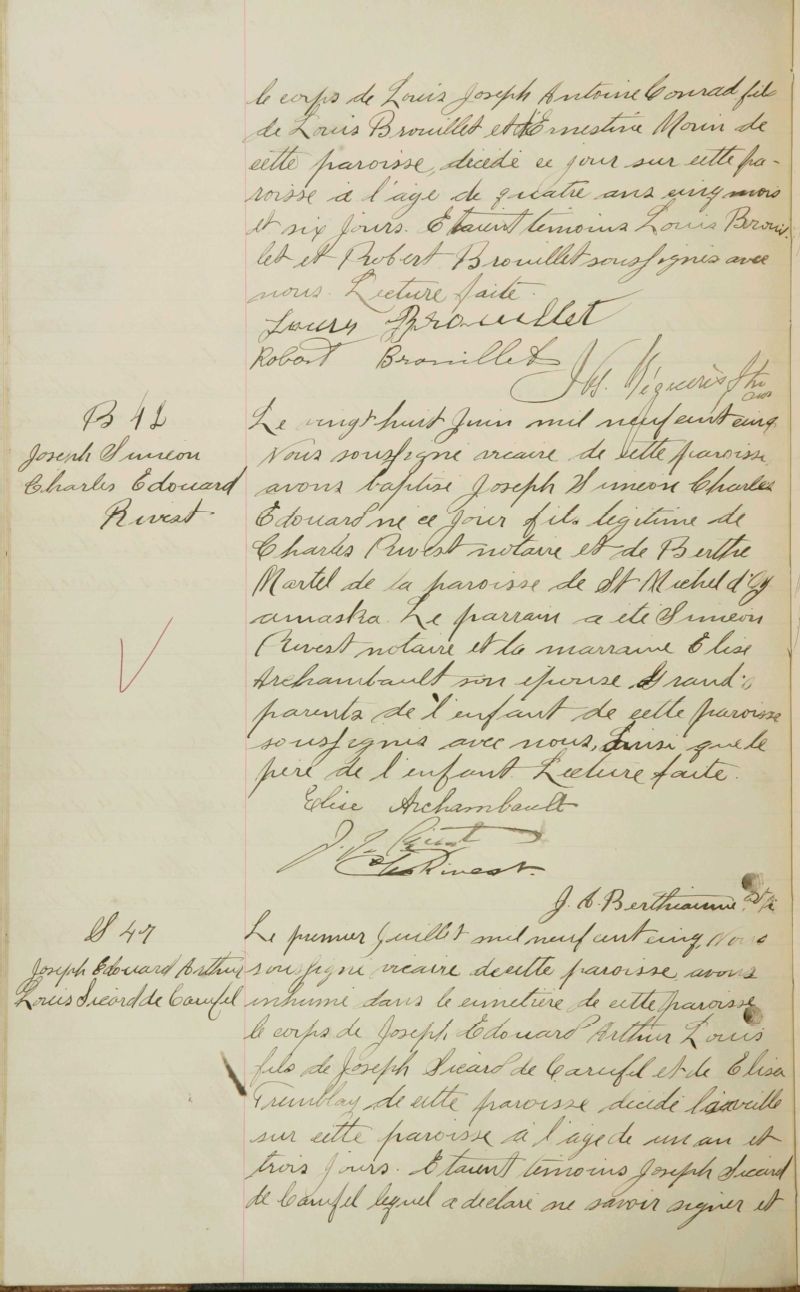 le corps de Louis Joseph Antoine Conrad fils
de Louis Brouillet et d'Ernestine Morin de
cette paroisse, décédé ce jour sur cette pa-
roisse à l'âge de quatre ans cinq mois
et six jours. Etaient témoins Louis Brouil
let et Robert Brouillet soussignés avec
nous. Lecture faite.
Louis Brouillet
Robert Brouillet
Jos.
B 42
Joseph Simeon
Charles Edouard
Rivest
Le vingt huit Juin mil neuf cent cinq
Nous soussigné vicaire de cette paroisse
avons baptisé Joseph Simeon Charles
Edouard né ce jour fils légitime de
Charles Rivest notaire et de Berthe
Martel de la paroisse de St Michel d'Y
amaska. Le parrain a été Simeon
Rivest notaire et la marraine Elise
Archambault son épouse Grand's
parents de l'enfant de cette paroisse
soussignés avec nous, ainsi que le
père de l'enfant Lecture faite.
Elise Archambault
Rivest
Rivest.
J. A. Berthiaume
S 47
Joseph Edouard Arthur
Louis Sicard de Carufel
Le premier Juillet mil neuf cent cinq, Nous
soussigné vicaire de cette paroisse avons
inhumé dans le cimetière de cette paroisse
le corps de Joseph Edouard Arthur Louis
fils de Joseph Sicard de Carufel et de Elisa
Tremblay de cette paroisse décédé l'avant veille
sur cette paroisse à l'âge de un an et
trois jours. Etaient témoins Joseph Sicard
de Carufel lequel a déclaré ne savoir signer et